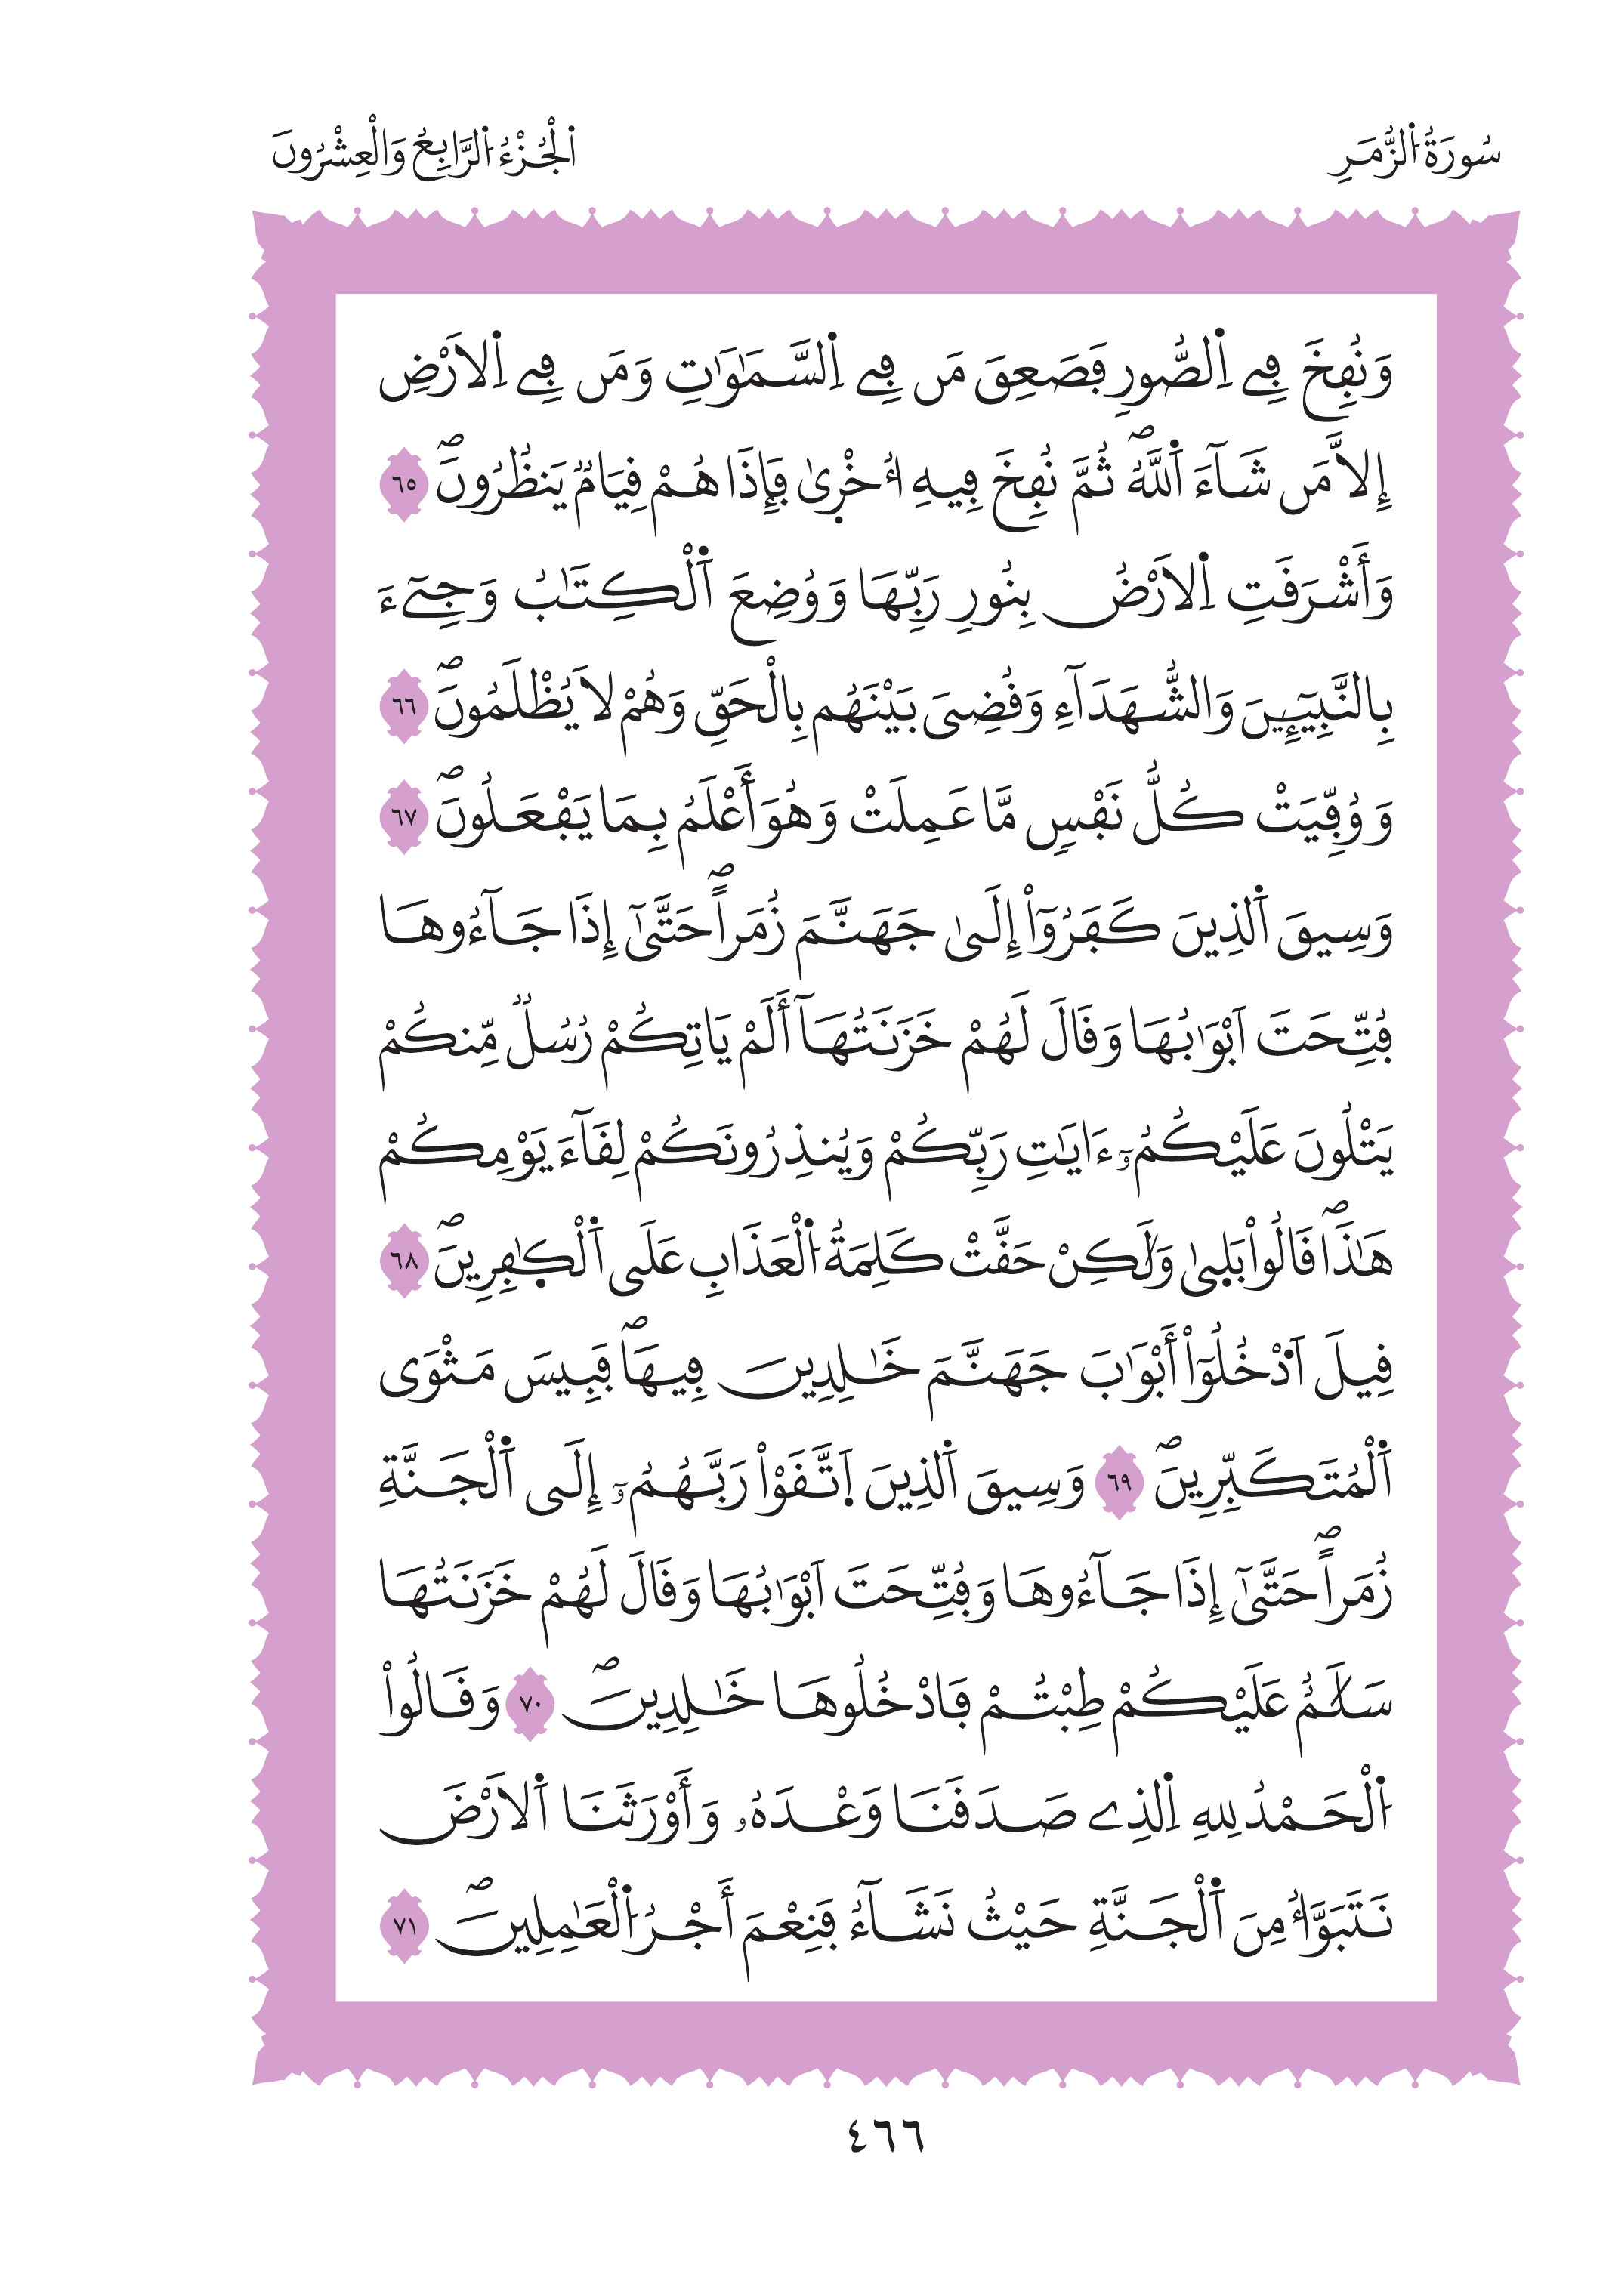 سُورَةُ اُ۬لزُّمَرِ
اَ۬لْجُزْءُ اُ۬لرَّابِعُ وَالْعِشْرُونَ
وَنُفِخَ فِے اِ۬لصُّورِ فَصَعِقَ مَن فِے اِ۬لسَّمَٰوَٰتِ وَمَن فِے اِ۬لَارْضِ
إِلَّا مَن شَآءَ اَ۬للَّهُۖ ثُمَّ نُفِخَ فِيهِ أُخْر۪يٰ فَإِذَا هُمْ قِيَامٞ يَنظُرُونَۖ ٦٥
وَأَشْرَقَتِ اِ۬لَارْضُ بِنُورِ رَبِّهَا وَوُضِعَ اَ۬لْكِتَٰبُ وَجِےٓءَ
بِالنَّبِيٓـِٕينَ وَالشُّهَدَآءِ وَقُضِيَ بَيْنَهُم بِالْحَقِّ وَهُمْ لَا يُظْلَمُونَۖ ٦٦
وَوُفِّيَتْ كُلُّ نَفْسٖ مَّا عَمِلَتْ وَهُوَ أَعْلَمُ بِمَا يَفْعَلُونَۖ ٦٧
وَسِيقَ اَ۬لذِينَ كَفَرُوٓاْ إِلَىٰ جَهَنَّمَ زُمَراًۖ حَتَّىٰٓ إِذَا جَآءُوهَا
فُتِّحَتَ اَبْوَٰبُهَا وَقَالَ لَهُمْ خَزَنَتُهَآ أَلَمْ يَاتِكُمْ رُسُلٞ مِّنكُمْ
يَتْلُونَ عَلَيْكُمُۥٓ ءَايَٰتِ رَبِّكُمْ وَيُنذِرُونَكُمْ لِقَآءَ يَوْمِكُمْ
هَٰذَاۖ قَالُواْ بَل۪يٰ وَلَٰكِنْ حَقَّتْ كَلِمَةُ اُ۬لْعَذَابِ عَلَى اَ۬لْكٰ۪فِرِينَۖ ٦٨
قِيلَ اَ۟دْخُلُوٓاْ أَبْوَٰبَ جَهَنَّمَ خَٰلِدِينَ فِيهَاۖ فَبِيسَ مَثْوَى
اَ۬لْمُتَكَبِّرِينَۖ ٦٩ وَسِيقَ اَ۬لذِينَ اَ۪تَّقَوْاْ رَبَّهُمُۥٓ إِلَى اَ۬لْجَنَّةِ
زُمَراًۖ حَتَّىٰٓ إِذَا جَآءُوهَا وَفُتِّحَتَ اَبْوَٰبُهَا وَقَالَ لَهُمْ خَزَنَتُهَا
سَلَٰمٌ عَلَيْكُمْ طِبْتُمْ فَادْخُلُوهَا خَٰلِدِينَۖ ٧٠ وَقَالُواْ
اُ۬لْحَمْدُ لِلهِ اِ۬لذِے صَدَقَنَا وَعْدَهُۥ وَأَوْرَثَنَا اَ۬لَارْضَ
نَتَبَوَّأُ مِنَ اَ۬لْجَنَّةِ حَيْثُ نَشَآءُ فَنِعْمَ أَجْرُ اُ۬لْعَٰمِلِينَۖ ٧١
٤٦٦